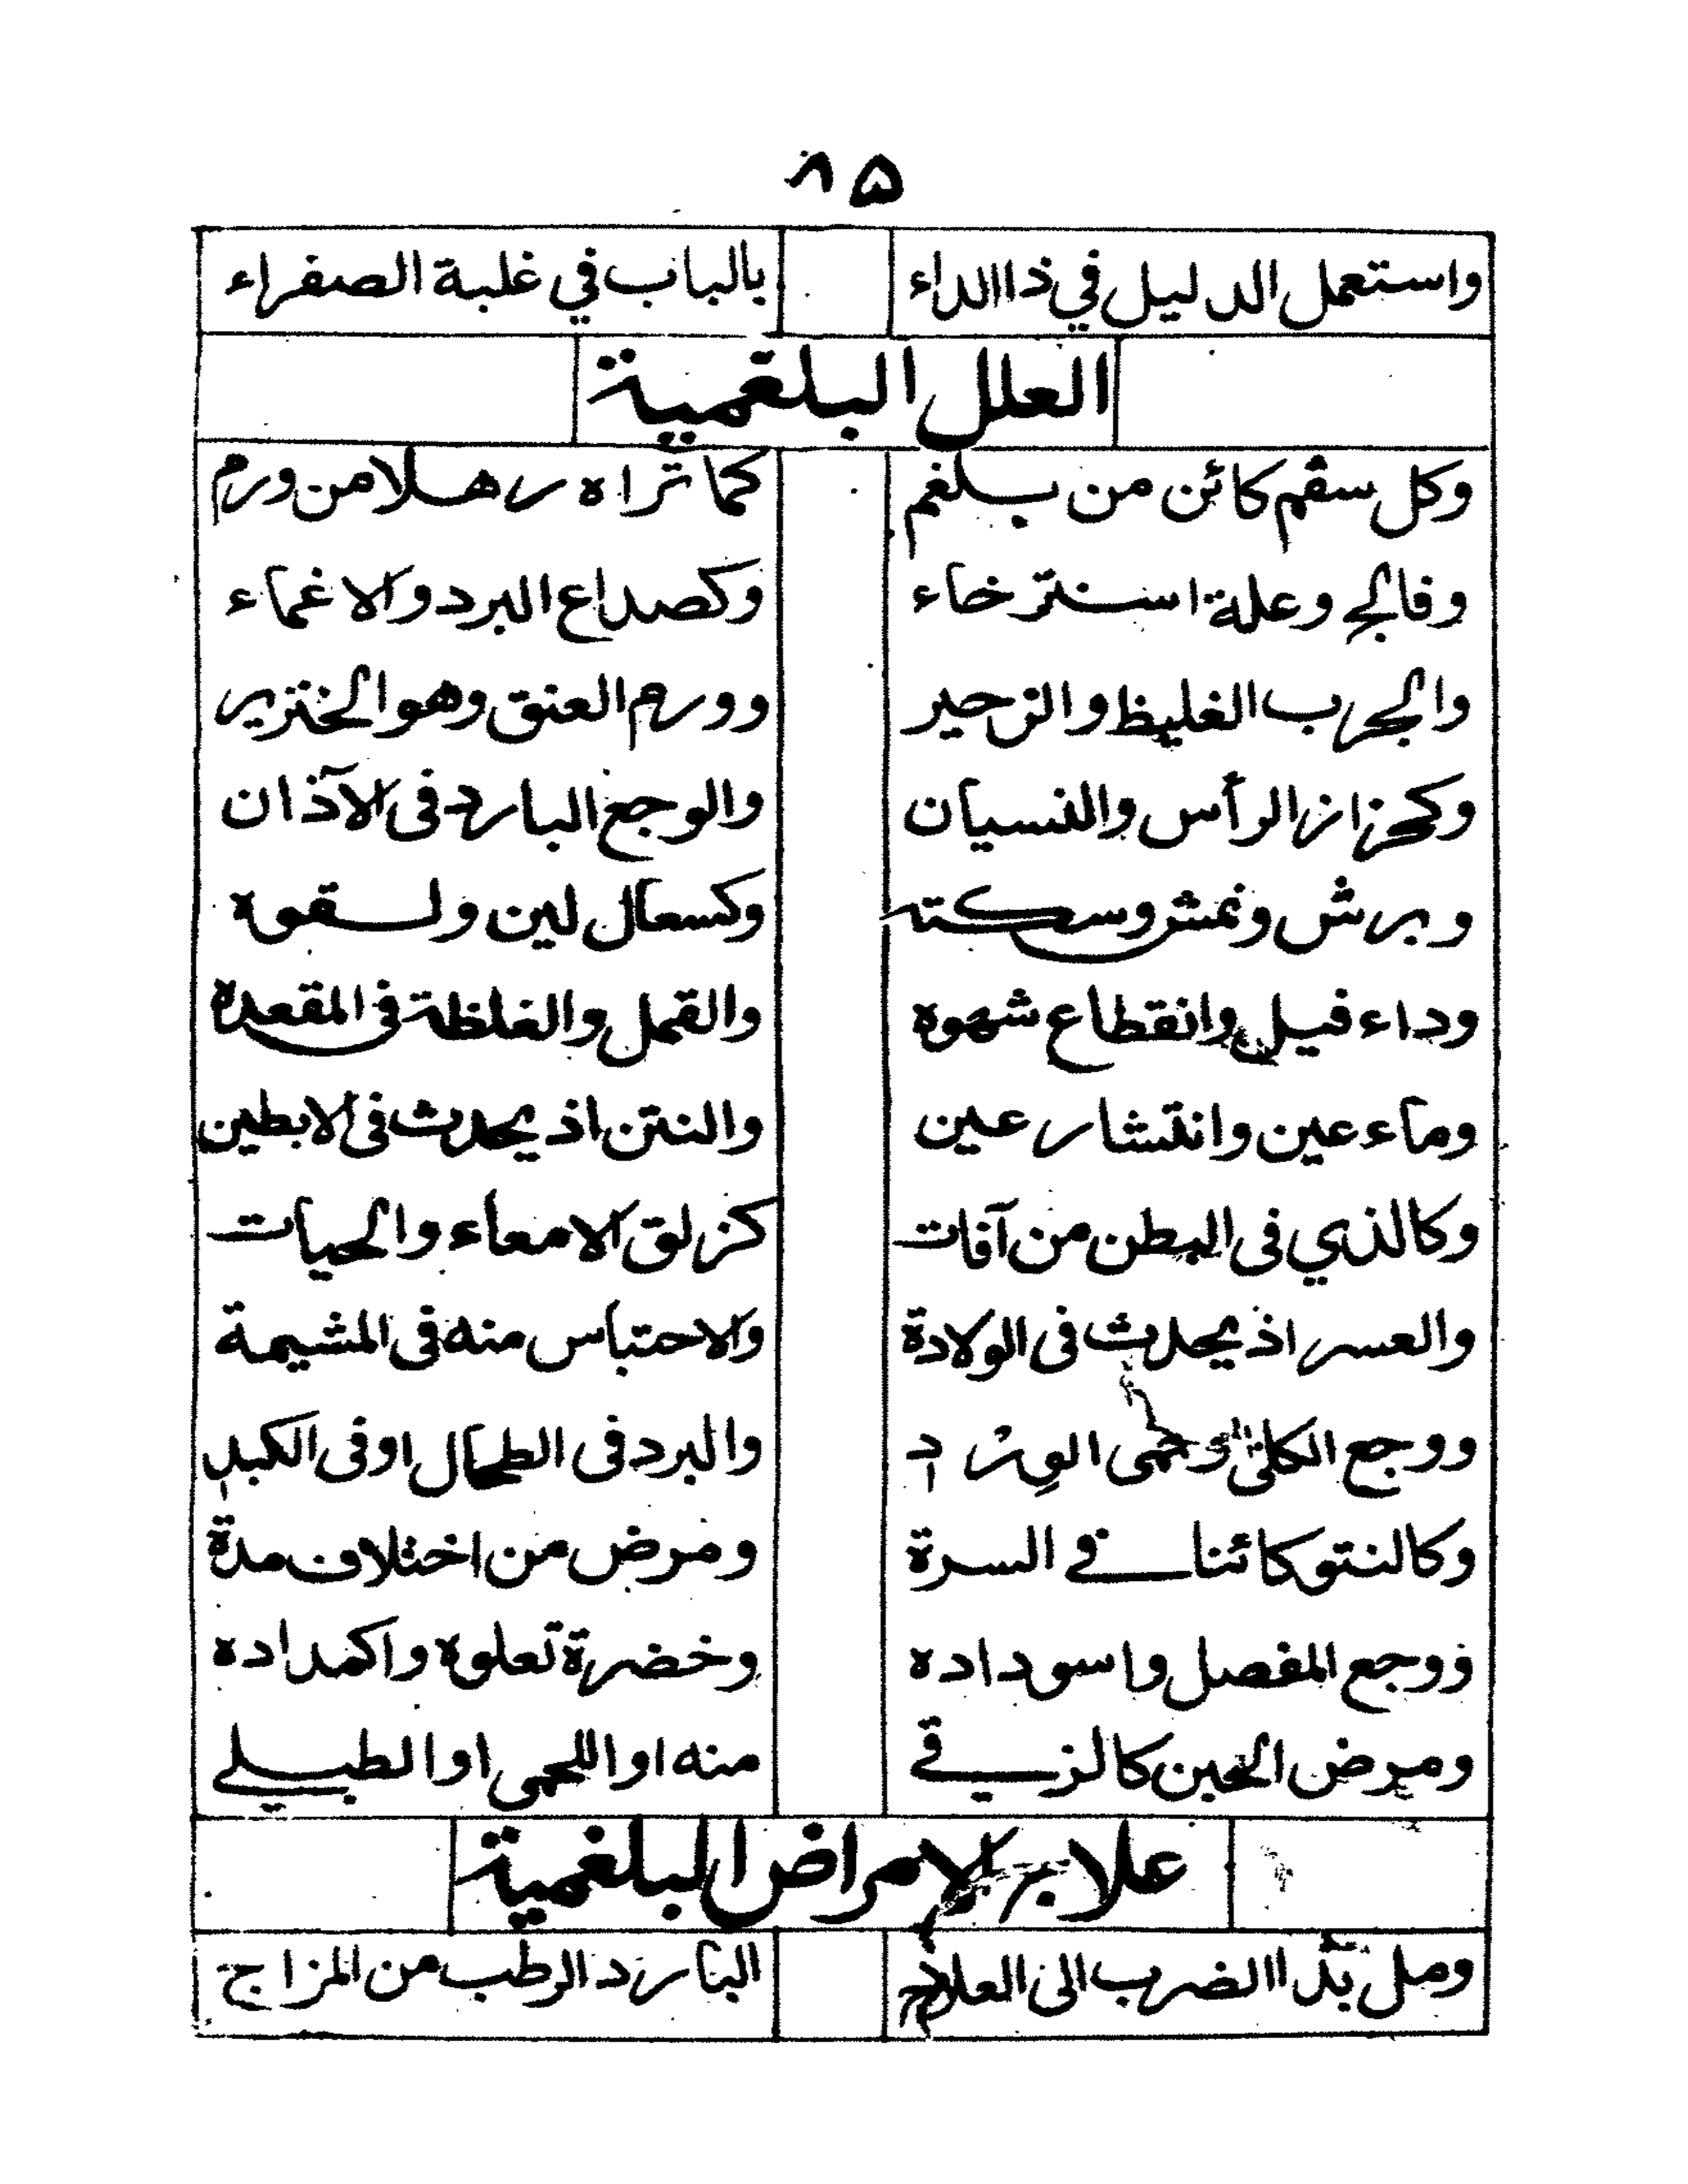 ٨٥
واستعمل الدليل في ذا الداء بالباب في غلبة الصفراء
العلل البلغمية
وكل سقم كائن من بلغم كما تراه رهلا من ورم
وفالج وعلة استرخاء وكصداع البرد والاغماء
والجرب الغليظ والزحير وورم العنق وهو الخنزير
وكحزاز الرأس والنسيان والوجع البارد فى الآذان
وبرش ونمش وسكته وكسعال لين ولقوه
وداء فيل وانقطاع شهوه والقمل والغلظة فى المقعده
وماء عين وانتشار عين والنتن اذ يحدث فى الابطين
وكالذي فى البطن من آفات كزلق الامعاء والحيات
والعسر اذ يحدث فى الولادة والاحتباس منه فى المشيمة
ووجع الكلى وحمى الوِرْدِ والبرد فى الطحال او فى الكبدِ
وكالنتو كائنا في السرة ومرض من اختلاف مدة
ووجع المفصل واسوداده وخضرة تعلوه واكمداده
ومرض الحبن كالزقي منه او اللحمى او الطبلي
علاج الامراض البلغمية
ومل بذا الضرب الى العلاج البارد الرطب من المزاج